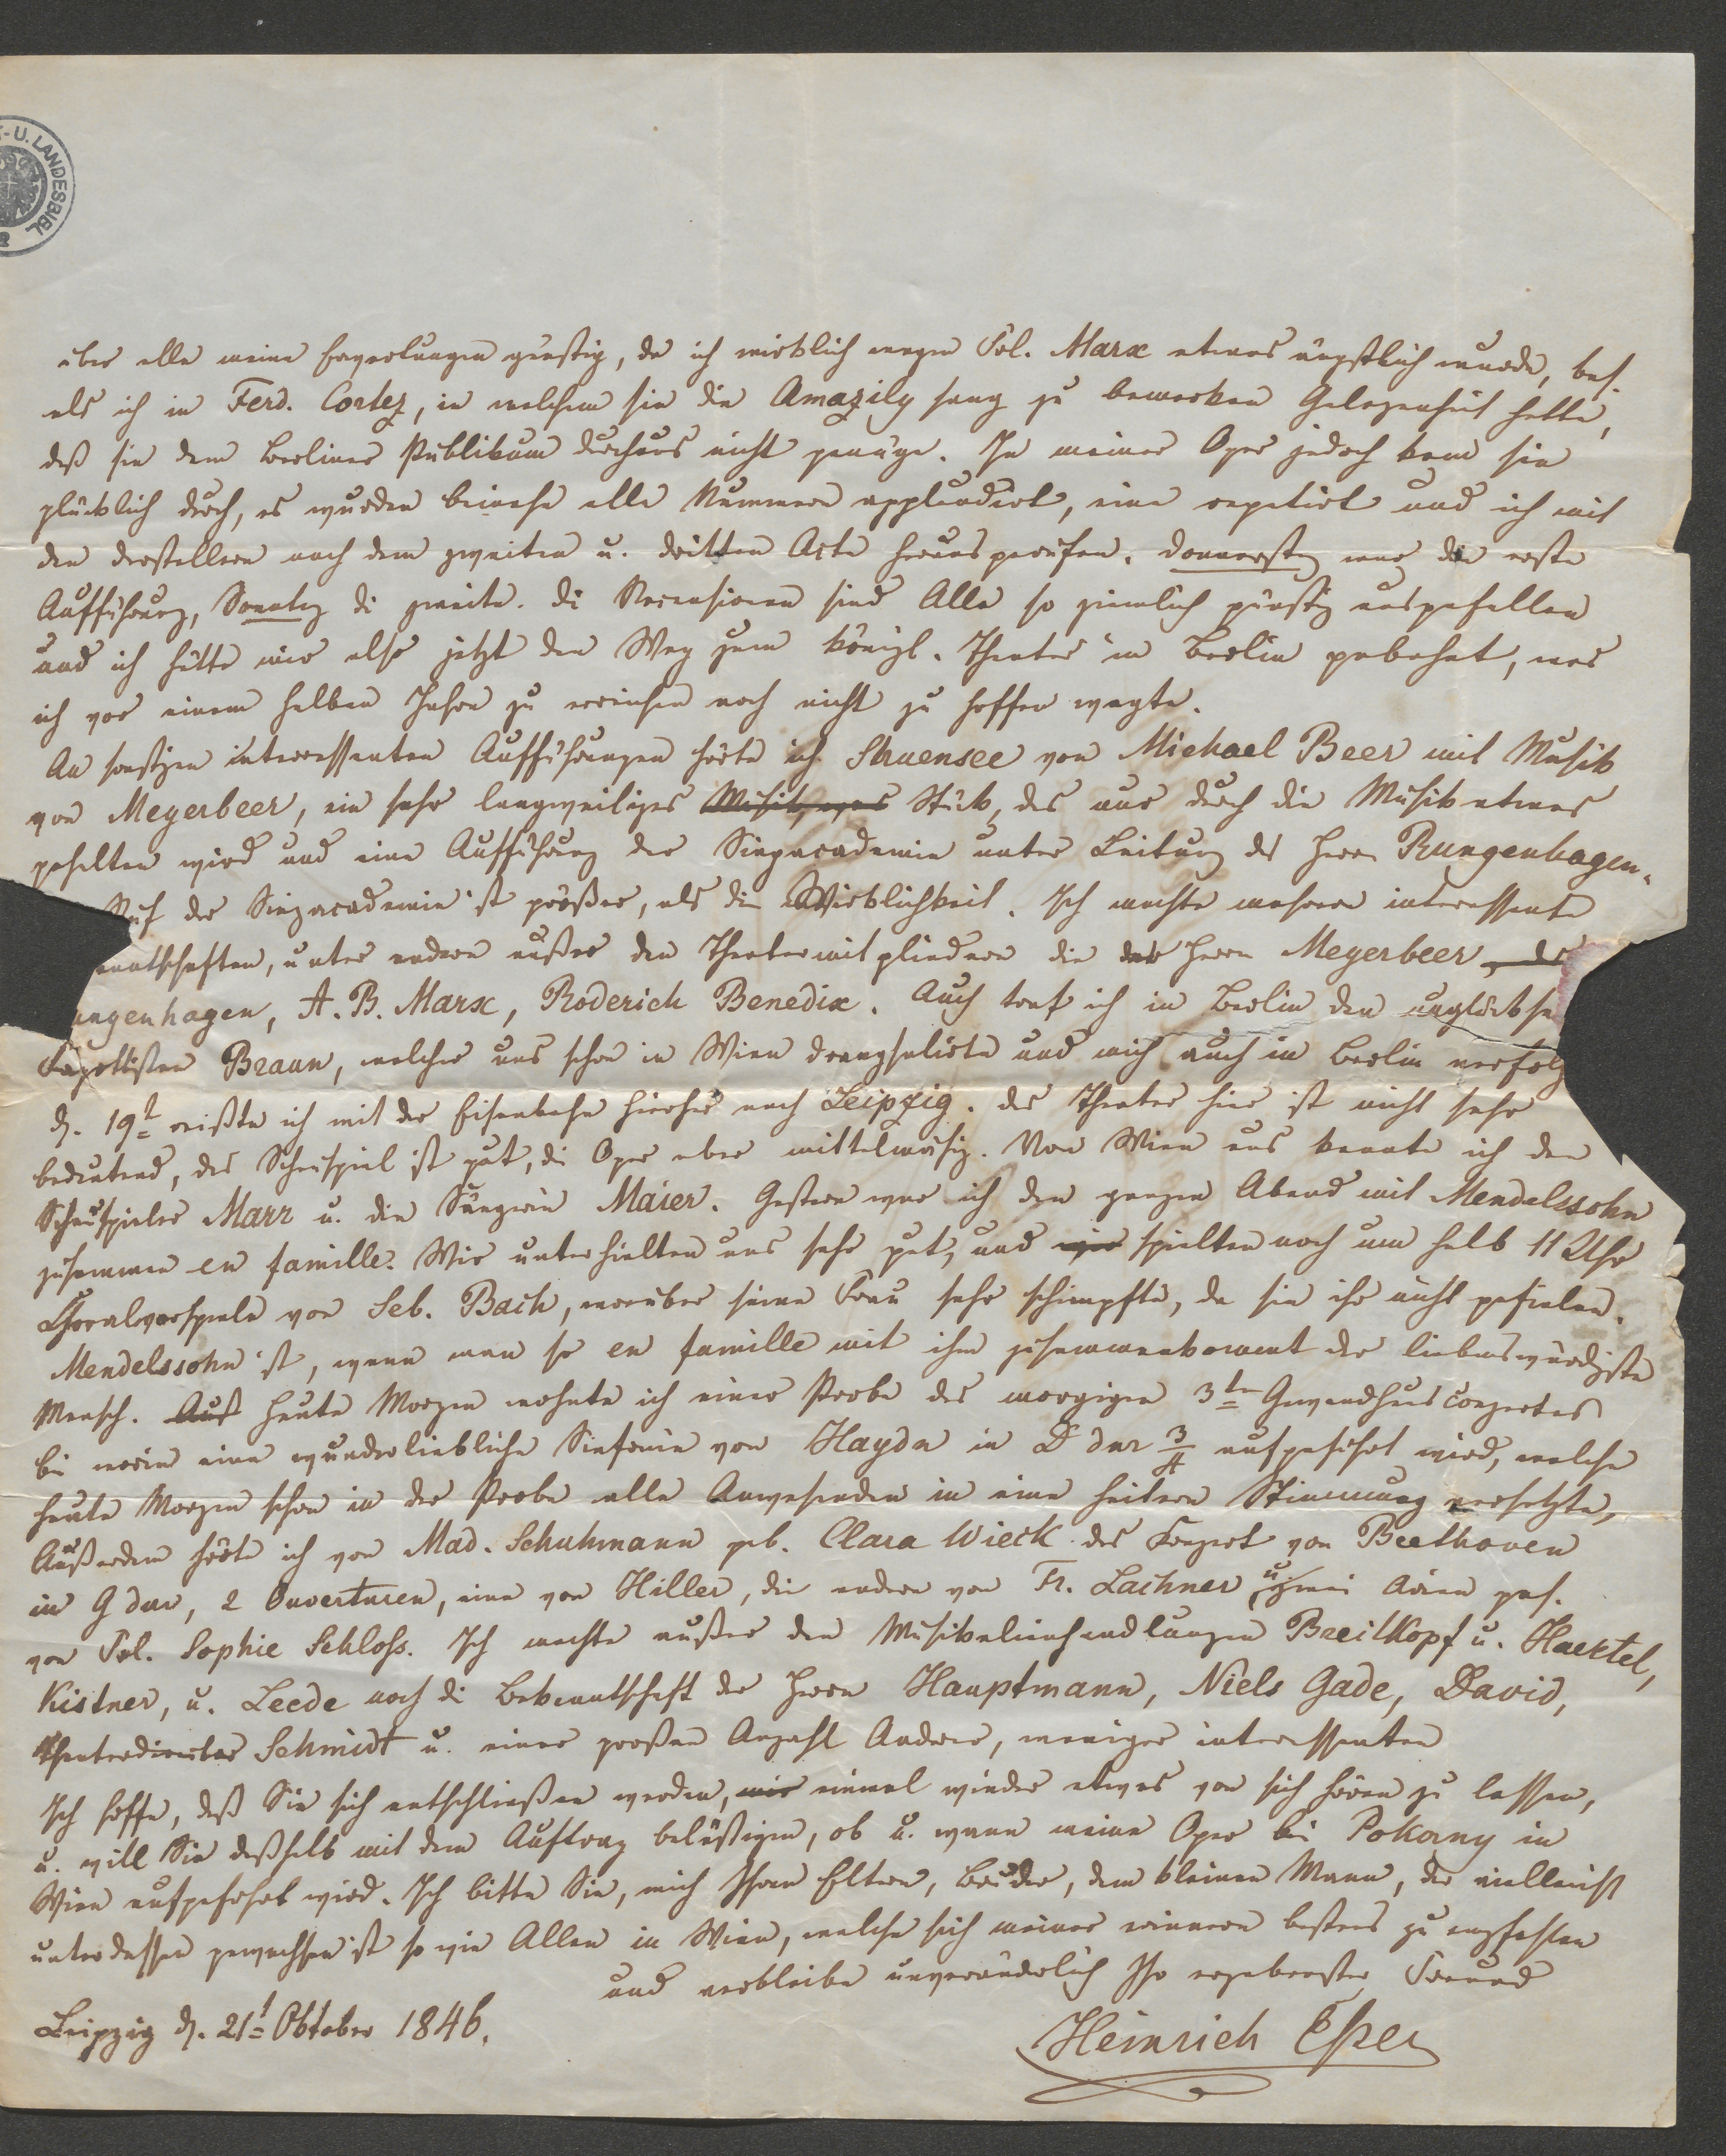 T- U. LANDESBIBL
über alle meine Erwartungen günstig, da ich wirklich wegen Frl. Marx etwas ängstlich wurde, bes.
als ich in Ferd. Cortez, in welchem sie die Amazily sang zu bemerken Gelegenheit hatte,
daß sie dem Berliner Publikum durchaus nicht genüge. In meiner Oper jedoch kam sie
glücklich durch, es wurden beinahe alle Nummern applaudirt, eine repetirt und ich mit
den Darstellern nach dem zweiten u. dritten Acte herausgerufen. Donnerstag war die erste
Aufführung, Sonntag di zweite. di Recensionen sind Alle so ziemlich günstig ausgefallen
und ich hätte mir also jetzt den Weg zum königl. Theater in Berlin gebahnt, was
ich vor einem halben Jahre zu erreichen noch nicht zu hoffen wagte.
An sonstigen interressanten Aufführungen hörte ich Struensee von Michael Beer mit Musik
von Meyerbeer, ein sehr langweiliges Musik Stück, das nur durch die Musik etwas
gehalten wird und eine Aufführung der Singacademie unter Leitung des Herrn Rungenhagen.
Ruf der Singacademie ist größer, als die Wirklichkeit. Ich machte mehrere interessante
anntschaften, unter andern außer den Theatermitgliedern die der Herrn Meyerbeer, de
ungenhagen, A. B. Marx, Roderich Benedix. Auch traf ich in Berlin den unglückse
Fagottisten Braun, welcher uns schon in Wien drangsalirte und mich auch in Berlin verfolg
d. 19t reißte ich mit der Eisenbahn hierher nach Leipzig. das Theater hier ist nicht sehr
bedeutend, das Schauspiel ist gut, di Oper aber mittelmäsig. Von Wien aus kannte ich den
Schauspieler Marr u. die Sängerin Maier. Gestern war ich den ganzen Abend mit Mendelssohn
zusammen en famille. Wir unterhielten uns sehr gut, und wir spielten noch um halb 11 Uhr
Choralvorspiele von Seb. Bach, worüber seine Frau sehr schimpfte, da sie ihr nicht gefielen.
Mendelssohn ist, wenn man so en famille mit ihm zusammenkommt der liebenswürdigste
Mensch. Auß heute Morgen wohnte ich einer Probe des morgigen 3ten Gewandhausconzertes
bei worin eine wunderliebliche Sinfonie von Haydn in D dur 3/4 aufgeführt wird, welche
heute Morgen schon in der Probe alle Anwesenden in eine heitere Stimmung versetzte,
Außerdem hörte ich von Mad. Schuhmann geb. Clara Wieck das Konzert von Beethoven
in G dur, 2 Ouverturen, eine von Hiller, die andere von Fr. Lachner u. zwei Arien ges.
von Frl. Sophie Schloss. Ich machte außer den Musikalienhandlungen Breitkopf u. Haertel,
Kistner, u. Leede noch di Bekanntschaft der Herrn Hauptmann, Niels Gade, David,
Theaterdirector Schmidt u. einer großen Anzahl Anderer, weniger interessanten
Ich hoffe, daß Sie sich entschließen werden, mir einmal wieder etwas von sich hören zu lassen,
u. will Sie deßhalb mit dem Auftrag belästigen, ob u. wann meine Oper bei Pokorny in
Wien aufgeführt wird. Ich bitte Sie, mich Ihren Eltern, Bruder, dem kleinen Mann, der vielleicht
unterdessen gewachsen ist so wie Allen in Wien, welche sich meiner erinnern bestens zu empfehlen
und verbleibe unveränderlich Ihr ergebenster Freund
Leipzig d. 21t Oktober 1846.
Heinrich Esser